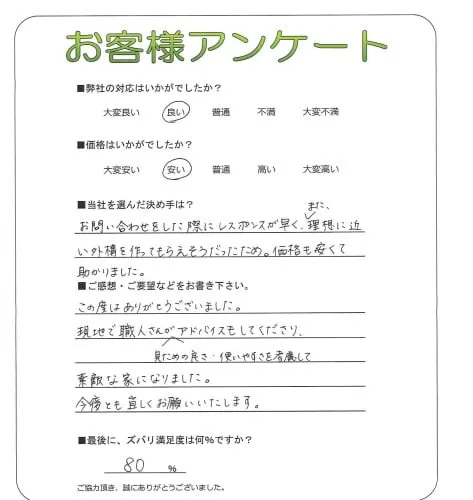 お客様アンケート
■弊社の対応はいかがでしたか？
大変良い 良い 普通 不満 大変不満
■価格はいかがでしたか？
大変安い 安い 普通 高い 大変高い
■当社を選んだ決め手は？
また、
お問い合わせをした際にレスポンスが早く、理想に近
い外構を作ってもらえそうだったため。価格も安くて
助かりました。
■ご感想・ご要望などをお書き下さい。
この度はありがとうございました。
現地で職人さんがアドバイスもしてくださり、
見ための良さ・使いやすさを考慮して
素敵な家になりました。
今後とも宜しくお願いいたします。
■最後に、ズバリ満足度は何%ですか？
80 %
ご協力頂き、誠にありがとうございました。